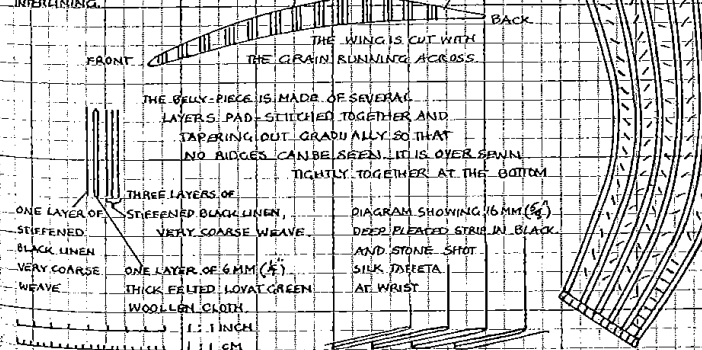 INTERLINING.
BACK
FRONT
THE WING IS CUT WITH
THE GRAIN RUNNING ACROSS.
THE BELLY-PIECE IS MADE OF SEVERAL
LAYERS PAD-STITCHED TOGETHER AND
TAPERING OUT GRADUALLY SO THAT
NO RIDGES CAN BE SEEN. IT IS OVERSEWN
TIGHTLY TOGETHER AT THE BOTTOM
ONE LAYER OF
STIFFENED
BLACK LINEN
VERY COARSE
WEAVE
THREE LAYERS OF
STIFFENED BLACK LINEN,
VERY COARSE WEAVE.
ONE LAYER OF 6MM (¼")
THICK FELTED LOVAT GREEN
WOOLLEN CLOTH.
DIAGRAM SHOWING 16MM (⅝")
DEEP PLEATED STRIP IN BLACK
AND STONE SHOT
SILK TAFFETA
AT WRIST
1:1 INCH
1:1 CM